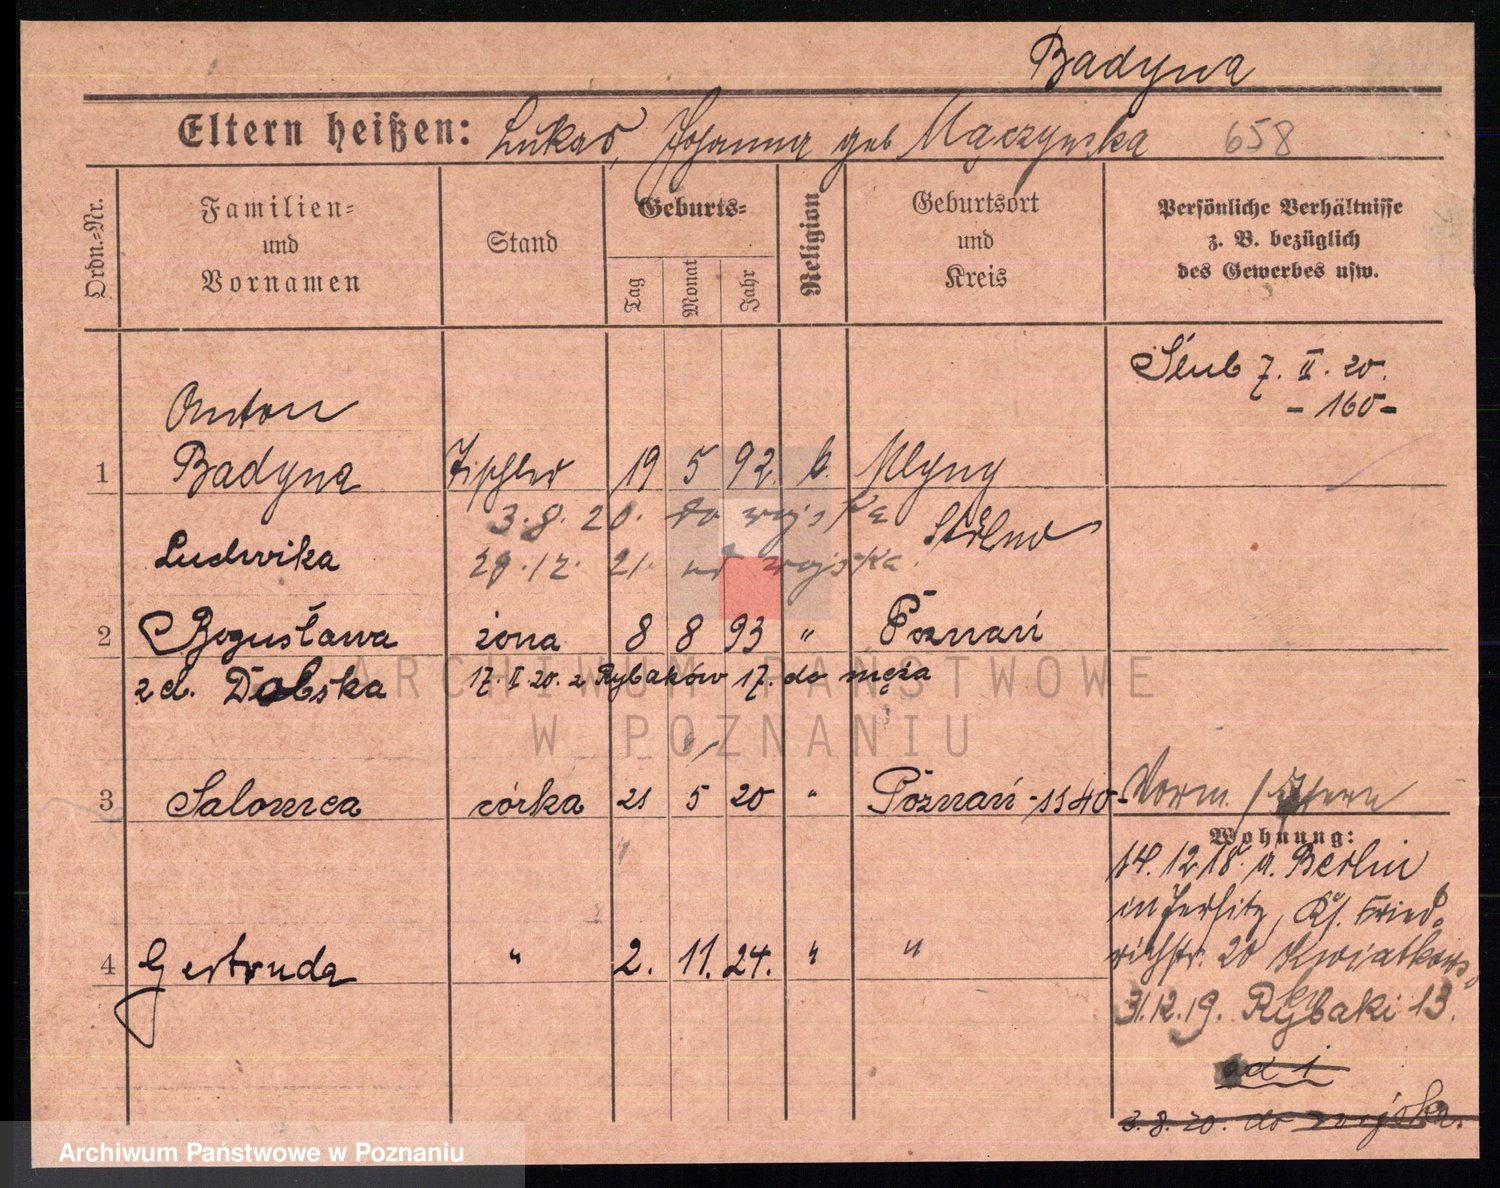 Badyna
Eltern heißen: Lukas, Johanna geb Mączyńska 658
Ordn.-Nr.
Familien- und Vornamen
Stand
Geburts-
Tag
Monat
Jahr
Religion
Geburtsort und Kreis
Persönliche Verhältnisse
z. B. bezüglich
des Gewerbes usw.
Ślub 7. II. 20.
- 160 -
Anton
1 Badyna Tischler 19 5 92. k. Mlyny
3.8.20. do wojska Strelno
Ludwika 29.12.21. od wojska.
2 Bogusława żona 8 8 93 " Poznań
z d. Dabska 17. II 20. z Rybaków 17. do męża
3 Salomea córka 21 5 20 " Poznań - 1140 -
Vorm.
Wohnung:
14. 12 18. a. Berlin
in Jersitz, Ks. Fried-
richstr. 20 Kwiatkows
4 Gertruda " 2. 11. 24. " "
31.12.19. Rybaki 13.
ad 1
3.8.20. do wojska.
ARCHIWUM PAŃSTWOWE
W POZNANIU
Archiwum Państwowe w Poznaniu